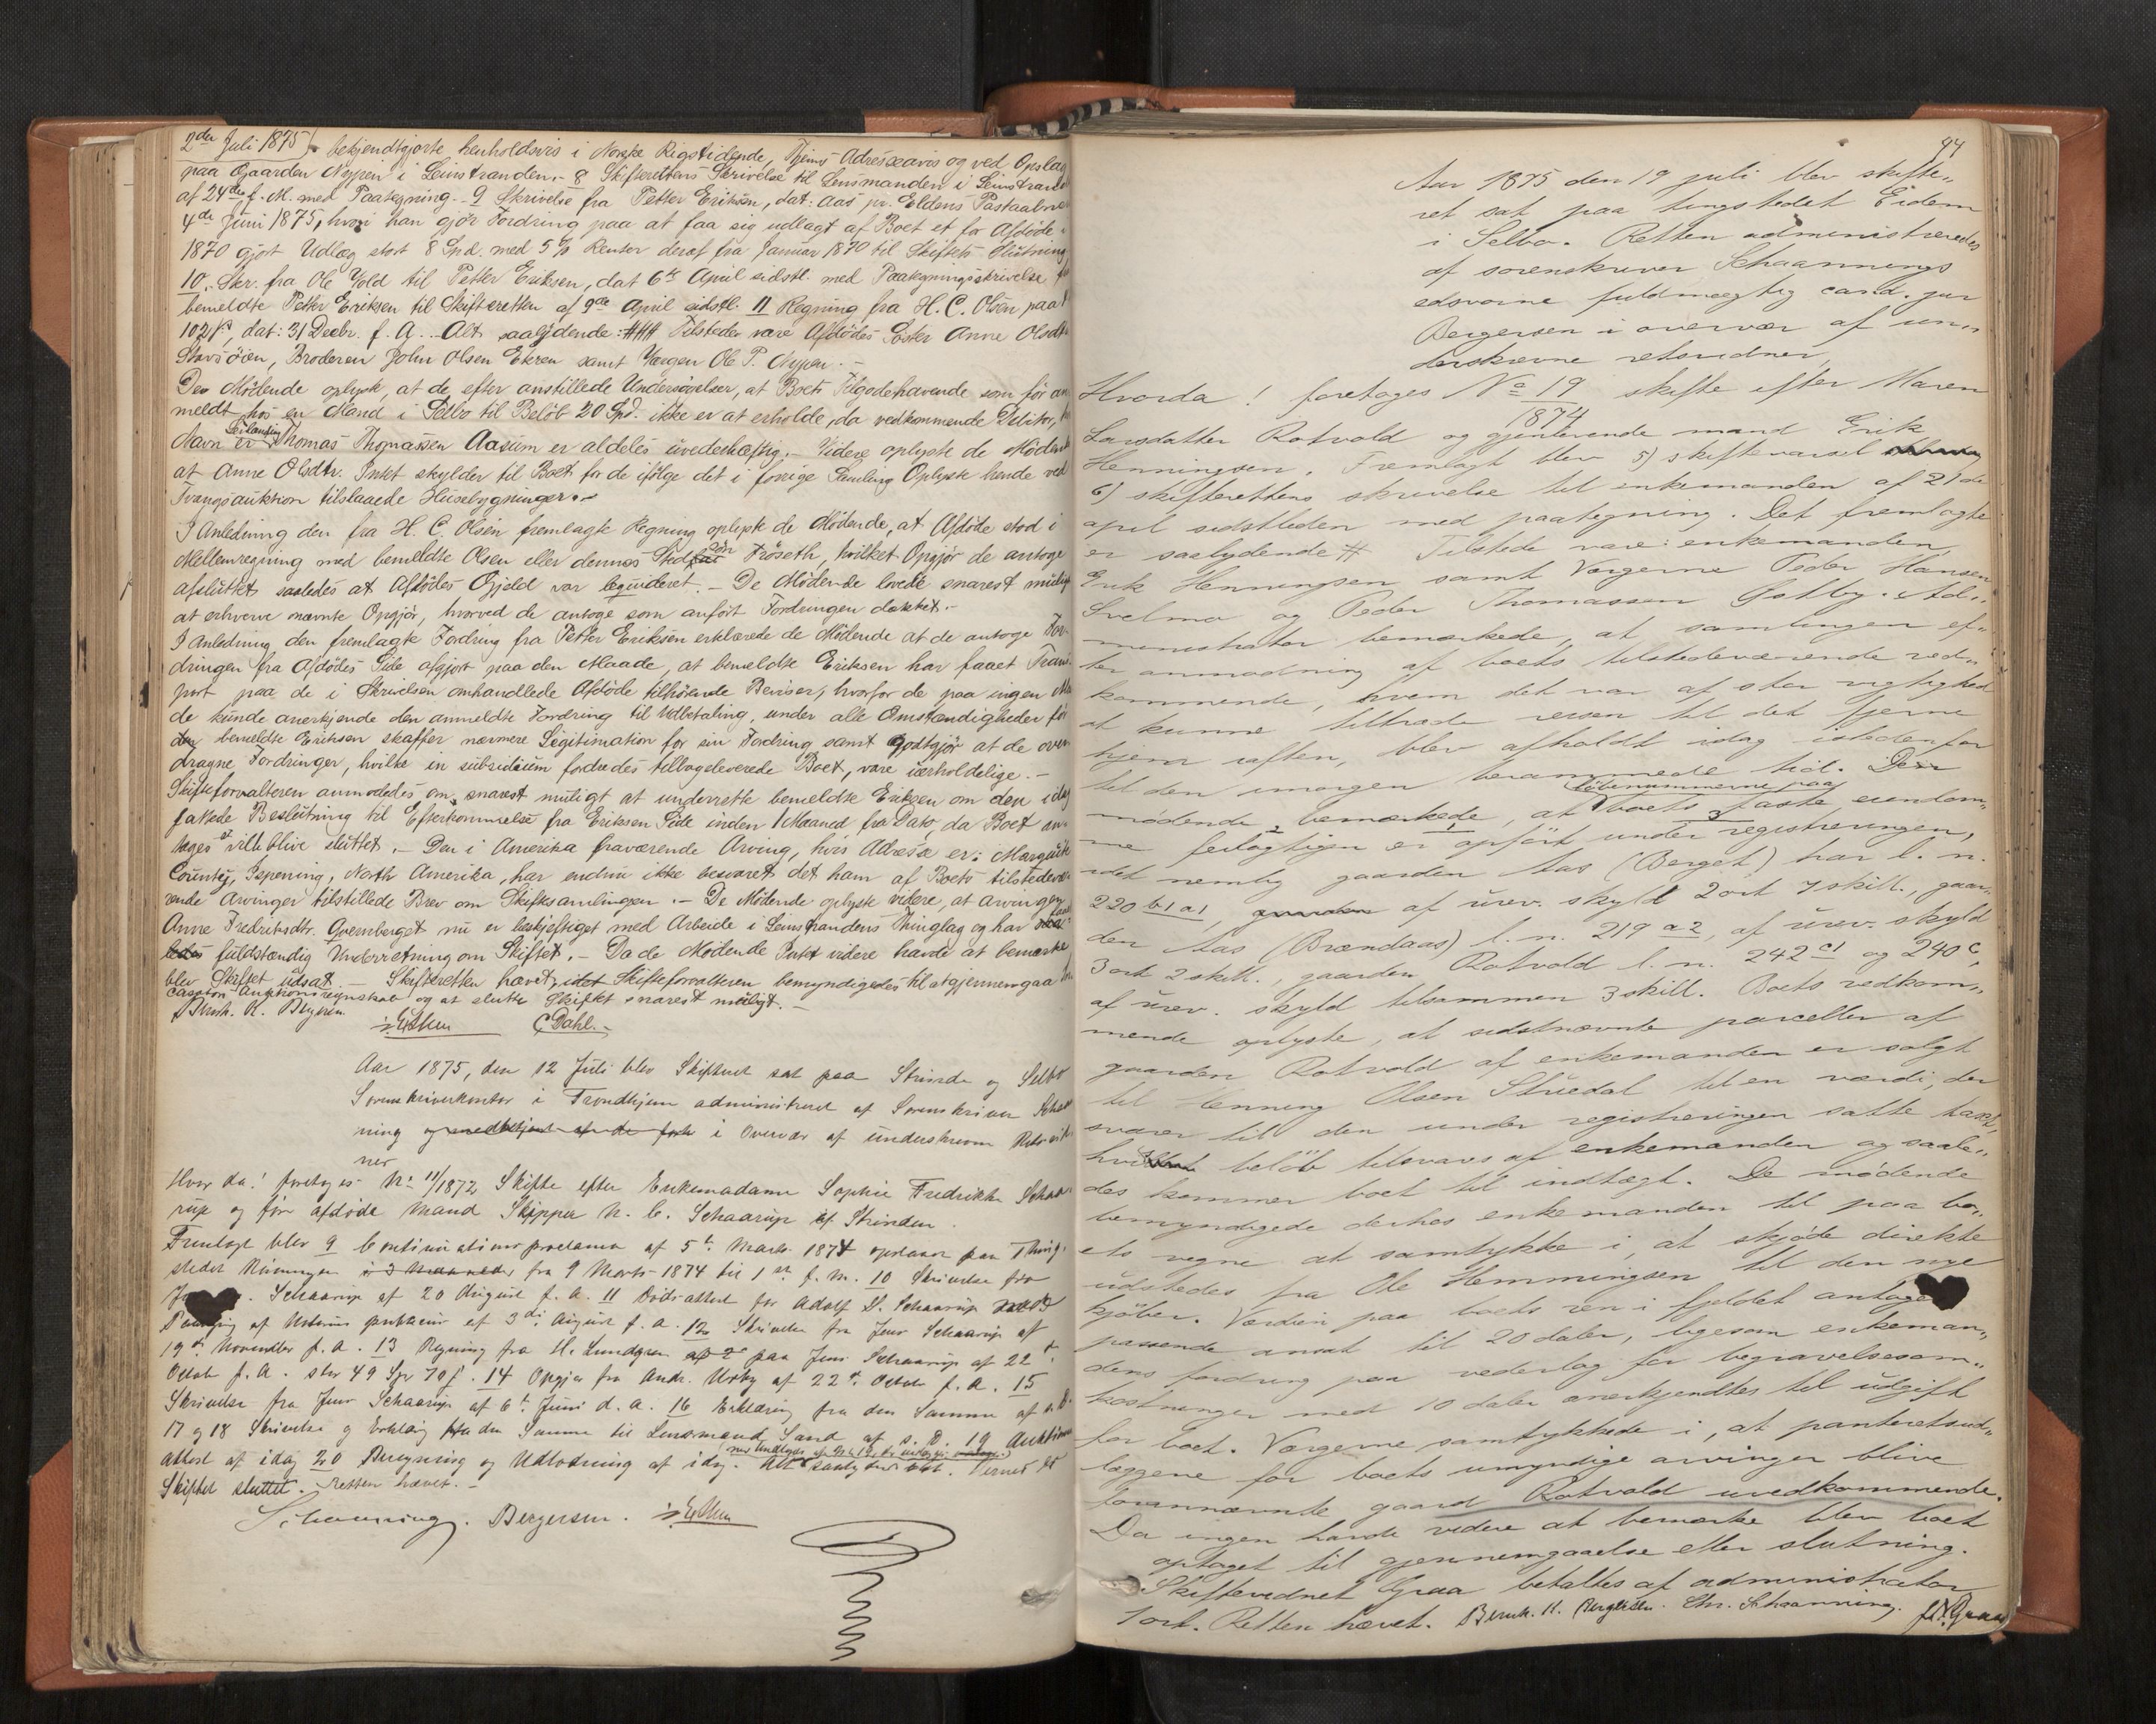 2den Juli 1875. bekjendtgjorte henholdsvis i Norske Rigstidende, Thjems Adresseavis og ved Opslag
paa Gaarden Nypen i Leinstranden. - 8 Skifterettens Skrivelse til Lensmanden i Leinstranden
af 24de f. M. med Paategning. 9 Skrivelse fra Petter Eriksen, dat: Aas pr. Eldens Postaabne
4de Juni 1875, hvori han gjör Fordring paa at faa sig udlagt af Boet et for Afdöde i
1870 gjort Udlæg stort 8 Spd. med 5 % Renter deraf fra Januar 1870 til Skiftets Slutning
10. Skr. fra Ole Yold til Petter Eriksen, dat 6te April sidstl. med Paategningsskrivelse fra
bemeldte Petter Eriksen til Skifteretten af 9de April sidstl. 11 Regning fra H. C. Olsen paa
102 ß, dat: 31 Decbr. f. A. Alt saalydende: ### Tilstede vare Afdödes Söster Anne Olsdtr
Stavsöien, Broderen John Olsen Ekren samt Værgen Ole P. Nypen. -
De Mödende oplyste, at de, efter anstillede Undersögelser, at Boets Tilgodehavende som för an
meldt hos en Mand i Selbo til Belöb 20 Spd. ikke er at erholde, da vedkommende Debitor, hvis
Navn er Thomas Thomassen Aasum er aldeles uvederhæftig. - Videre oplyste de Mödende
at Anne Olsdtr. Intet skylder til Boet for de ifölge det i forrige Samling Oplyste hende ved
Tvangsauktion tilslaaede Husebygninger. -
I Anledning den fra H. C. Olsen fremlagte Regning oplyste de Mödende, at Afdöde stod i
Mellemregning med bemeldte Olsen eller dennes Stedsön Fröseth, hvilket Opgjör de antoge
afsluttet saaledes at Afdödes Gjeld var liquideret. - De Mödende lovede snarest muligt
at erhverve nævnte Opgjör, hvorved de antoge som anfört Fordringen dækket. -
I Anledning den fremlagte Fordring fra Petter Eriksen erklærede de Mödende at de antoge For-
dringen fra Afdödes Side afgjort paa den Maade, at bemeldte Eriksen har faaet Trans-
port paa de i Skrivelsen omhandlede Afdöde tilhörende Beviser, hvorfor de paa ingen Maa
de kunde anerkjende den anmeldte Fordring til Udbetaling, under alle Omstændigheder för
bemeldte Eriksen skaffer nærmere Legitimation for sin Fordring samt godtgjör at de over
dragne Fordringer, hvilke en subsidium fordredes tilbageleverede Boet, vare uerholdelige. -
Skifteforvalteren anmodedes om snarest muligt at underrette bemeldte Eriksen om den idag
fattede Beslutning til Efterkommelse fra Eriksens Side inden 1 Maaned fra Dato, da Boet an-
tages at ville blive sluttet. - Den i Amerika fraværende Arving, hvis Adresse er: Marquitte
County, Ispening, North Amerika, har endnu ikke besvaret det ham af Boets tilstedevæ-
rende Arvinger tilstillede Brev om Skiftesamlingen. - De Mödende oplyste videre, at arvingen
Anne Fredriksdtr. Qvernberget nu er beskjeftiget med Arbeide i Leinstrandens Thinglag og har faaet
fuldstændig Underretning om Skiftet. - Da de Mödende Intet videre havde at bemærke
blev Skiftet udsat. - Skifteretten hævet, idet Skifteforvalteren bemyndigedes til at gjennemgaa In-
cassations Auktionsregnskab og at slutte Skiftet snarest muligt. -
C Dahl. -
Aar 1875, den 12 Juli blev Skifteret sat paa Strinda og Selbo
Sorenskriverkontor i Trondhjem administreret af Sorenskriver Schan
ning i Overvær af underskrevne Retsvid-
ner
Hvor da! foretoges No 11/1872 Skifte efter Enkemadame Sophie Fredrikke Schaa-
rup og för afdöde Mand Skipper N. C. Schaarup af Strinden.
Fremlagt blev 9 Continuationsproclama af 5te Marts 1874 opslaaet paa Thing-
stedet fra 9 Marts 1874 til 1ste f. M. 10 Skrivelse fra
Schaarup af 20 August f. A. 11 Dödsattest for Adolf S. Schaarup med
af 3die August f. A. 12 Skrivelse fra Jens Schaarup af
19de November f. A. 13 Regning fra H. Lundgren paa Jens Schaarup af 22de
Octob f. A. stor 49 Spd 70 ß. 14 Opgjör fra Andr. Usty af 22de Octob f. A. 15
Skrivelse fra Jens Schaarup af 6te Juni d. A. 16 Erklæring fra den Samme af s. D.
17 og 18 Skrivelse og Erklæring fra den Samme til Lensmand Sand af s. D. 19 Auktions
attest af idag 20 Beregning og Udlodning af idag. Alt saalydende. Dermed er
Skiftet sluttet. Retten hævet. -
Schanning. Bergersen.
94
Aar 1875 den 19 juli blev skifte„
ret sat paa tingstedet Eidem
i Selbo. Retten administreredes
af sorenskriver Schaannings
edsvorne fuldmægtig cand. jur
Bergersen i overvær af un„
derskrevne retsvidner,
Hvorda! foretages No 19/1874 skifte efter Maren
Larsdatter Rotvold og gjenlevende mand Erik
Henningsen. Fremlagt blev 5) skiftevarsel
6) skifterettens skrivelse til enkemanden af 21de
april sidstleden med paategning. Det fremlagte
er saalydende # Tilstede vare: enkemanden
Erik Henningsen samt Værgerne Peder Hansen
Svelmo og Peder Thomassen Gotby. Ad„
ministrator bemærkede, at samlingen ef„
ter anmodning af boets tilstedeværende ved„
kommende, hvem det var af stor vigtighed
at kunne tiltræde reisen til det fjerne
hjem iaften, blev afholdt idag istedenfor
til den imorgen berammede tid. De
mødende bemærkede, at löbenummerne paa boets 3 faste eiendom„
me feilagtigen er opført under registreringen,
idet nemlig gaarden Aas (Berget) har l. n.
220 b1 a1, af urev. skyld 2 ort 7 skill., gaar„
den Aas (Brændaas) l. n. 219 a2, af urev. skyld
3 ort 2 skill., gaarden Rotvold l. n. 242 c1 og 240 c,
af urev. skyld tilsammen 3 skill. Boets vedkom„
mende oplyste, at sidstnævnte parceller af
gaarden Rotvold af enkemanden er solgt
til Henning Olsen Stuedal til en værdi, der
svarer til den under registreringen satte taxt,
hvilket beløb tilsvares af enkemanden og saale„
des kommer boet til indtægt. De mødende
bemyndigede derhos enkemanden til paa bo„
ets vegne at samtykke i, at skjøde direkte
udstedes fra Ole Hemmingsen til den nye
kjøber. Værdien paa boets ren i fjeldet antoges
passende ansat til 20 daler, ligesom enkeman„
dens fordring paa vederlag for begravelsesom„
kostninger med 10 daler anerkjendtes til udgift
for boet. Værgerne samtykkede i, at panteretsud„
læggene for boets umyndige arvinger blive
forannævnte gaard Rotvold uvedkommende.
Da ingen havde videre at bemærke blev boet
optaget til gjennemgaaelse eller slutning.
Skiftevidnet Graa betaltes af administrator
1 ort. Retten hævet. Bernh. H. Bergersen. Chr. Schaanning.